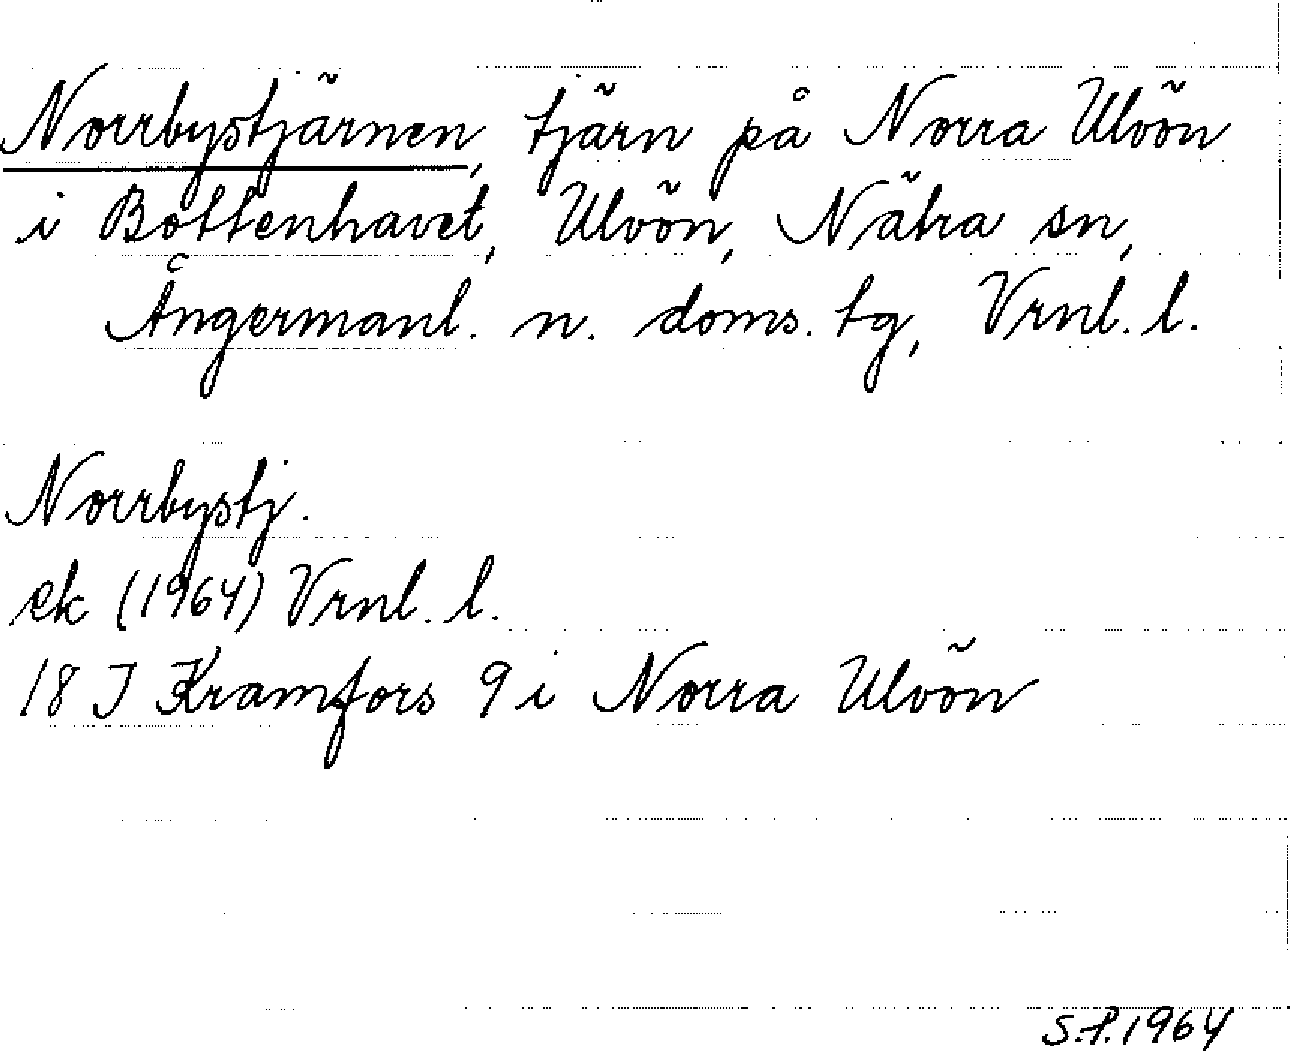 Norrbystjärnen, tjärn på Norra Ulvön
i Bottenhavet, Ulvön, Nätra sn,
Ångermanl. n. doms. tg, Vrnl. l.
Norrbystj.
ek (1964) Vrnl. l.
18 J Kramfors 9 i Norra Ulvön
S.P. 1964